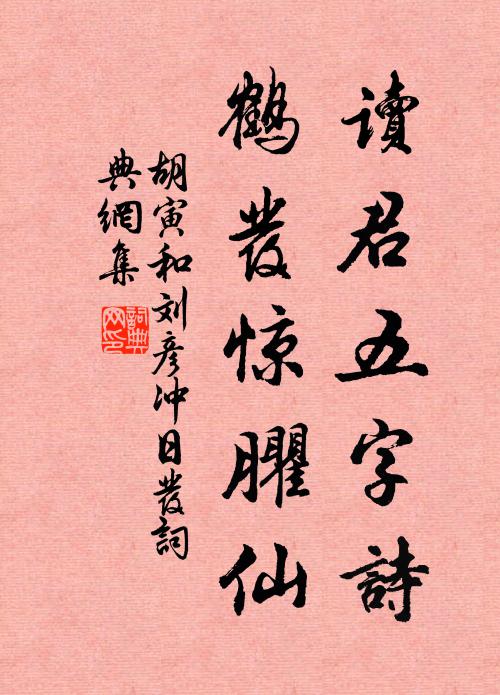 讀君五字詩
鶴發惊臞仙
胡寅和刘彥冲日發詞
典網集
詞典
网印